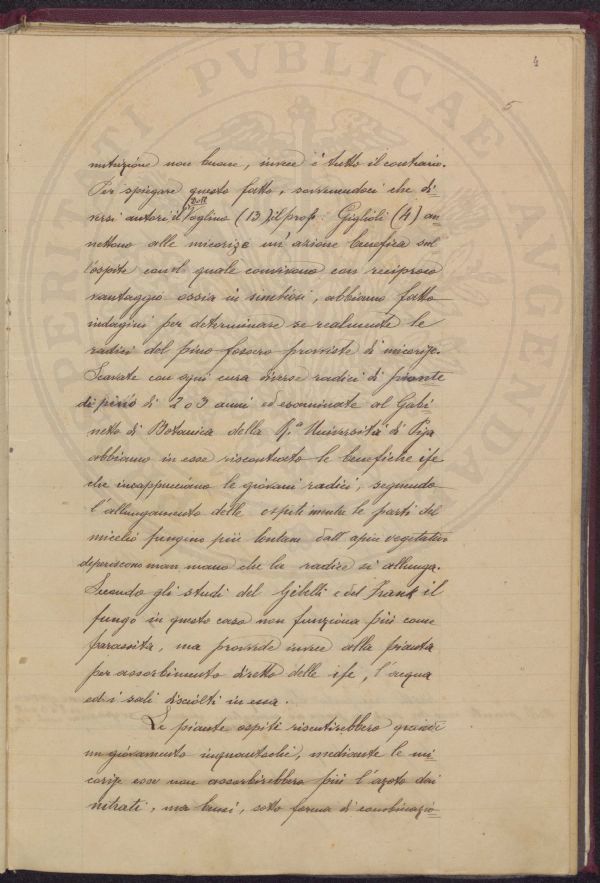 4
5
nutrizione non buone, invece è tutto il contrario.
Per spiegare questo fatto, sovvenendoci che di=
versi autori il Dott. Voglino (13) il prof: Giglioli (4) am=
mettono alle micorize un' azione benefica sul
l'ospite con il quale convivono con reciproco
vantaggio ossia in simbiosi, abbiamo fatto
indagini per determinare se realmente le
radici del pino fossero provviste di micorize.
Scavate con ogni cura diverse radici di piante
di pino di 2 o 3 anni ed esaminate al Gabi
netto di Botanica della R.a Università di Pisa
abbiamo in esse riscontrato le benefiche ife
che incappucciano le giovani radici, seguendo
l'allungamento delle ospiti mentre le parti del
micelio fungino più lontane dall' apice vegetativo
deperiscono man mano che la radice si allunga.
Secondo gli studi del Gibelli e del Frank il
fungo in questo caso non funziona più come
parassita, ma provvede invece alla pianta
per assorbimento diretto delle ife, l'acqua
ed i sali disciolti in essa.
Le piante ospiti risentirebbero grande
un giovamento inquantochè, mediante le mi=
corize esse non assorbirebbero più l'azoto dai
nitrati, ma bensì, sotto forma di combinazio=
PERITATI PVBLICAE AVGENDAE